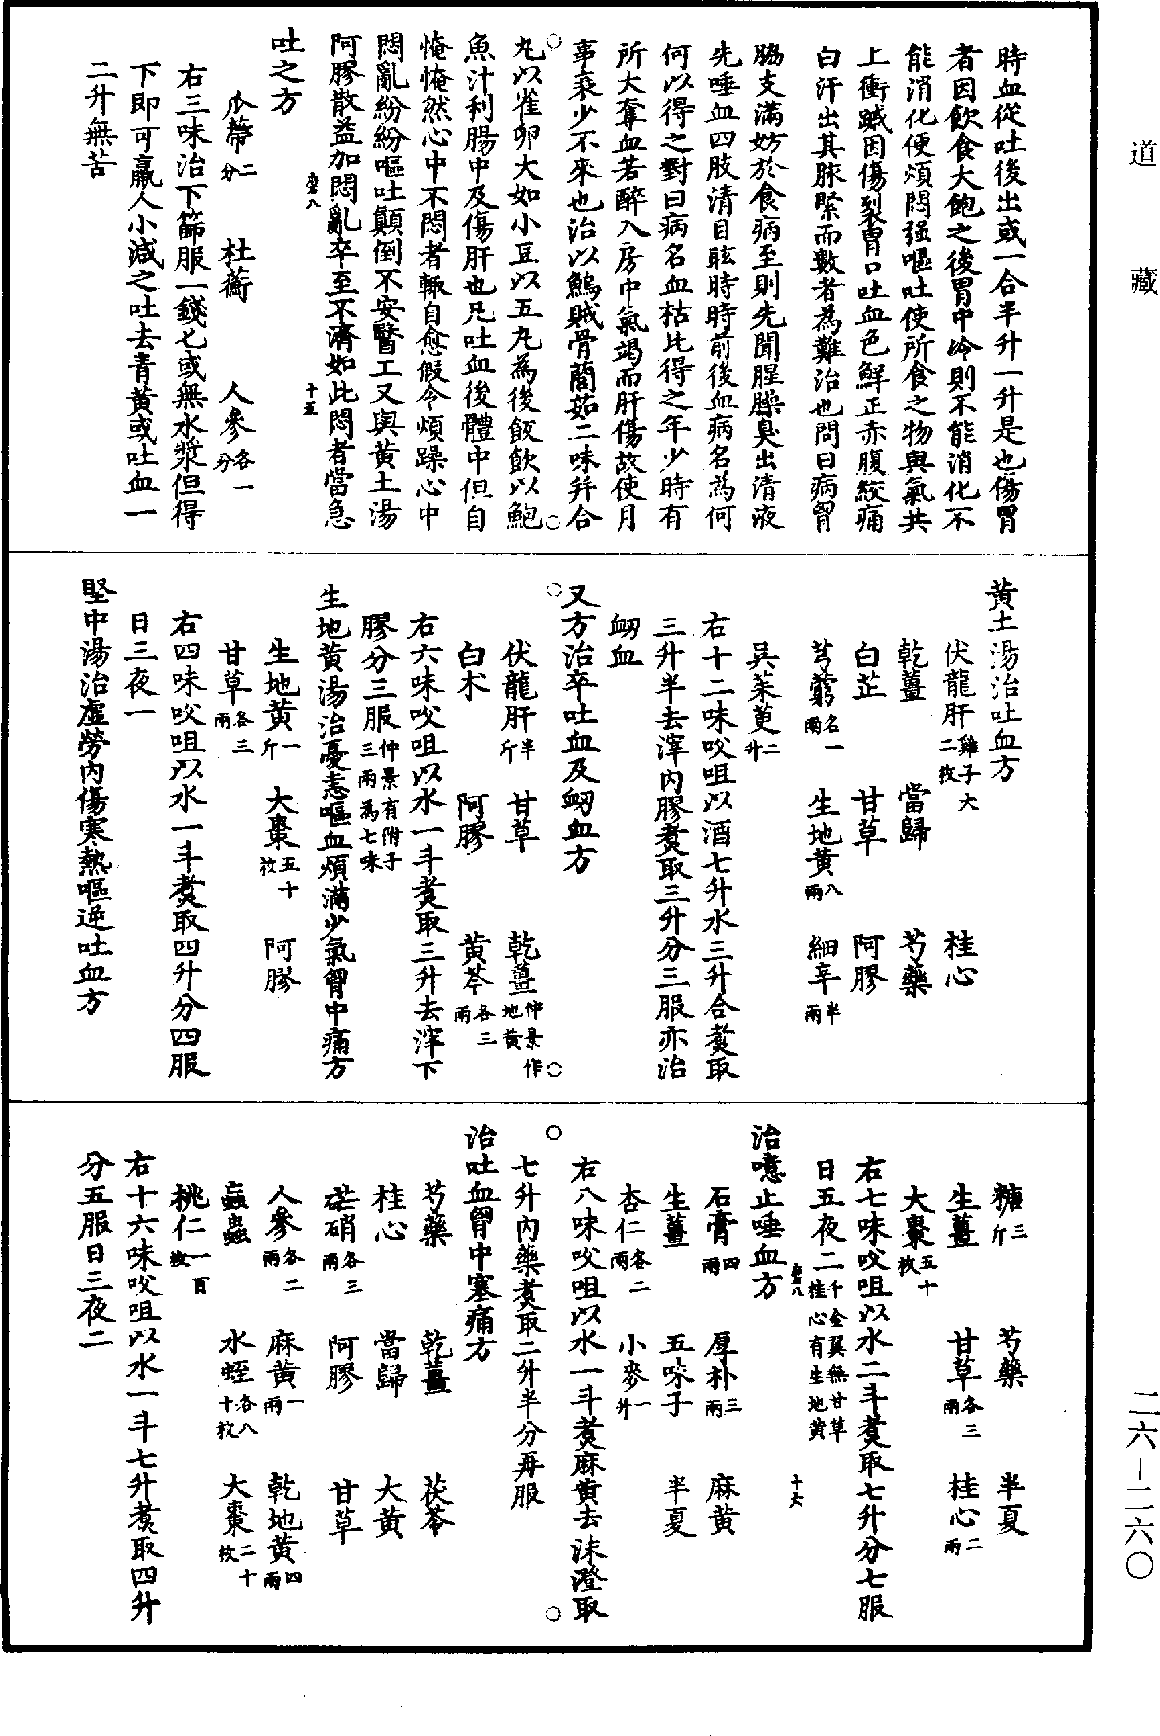 道藏
時血從吐後出或一合半升一升是也傷胃
者因飲食大飽之後胃中冷則不能消化不
能消化便煩悶強嘔吐使所食之物與氣共
上衝蹴因傷裂胃口吐血色鮮正赤腹絞痛
白汗出其脉緊而數者為難治也問曰病胷
脇支滿妨於食病至則先聞腥臊臭出清液
先唾血四肢清目眩時時前後血病名為何
何以得之對曰病名血枯此得之年少時有
所大奪血若醉入房中氣竭而肝傷故使月
事衰少不來也治以鰞賊骨䕡茹二味并合
丸以雀卵大如小豆以五丸為後飯飲以鮑
魚汁利腸中及傷肝也凡吐血後體中但自
俺俺然心中不悶者輙自愈假令煩躁心中
悶亂紛紛嘔吐顛倒不安醫工又與黃土湯
阿膠散益加悶亂卒至不濟如此悶者當急
十五
吐之方
瓜蔕二分 杜蘅 人參各一分
右三味治下篩服一錢匕或無水漿但得
下即可羸人小減之吐去青黃或吐血一
二升無苦
黃土湯治吐血方
伏龍肝雞子大二枚 桂心
乾薑 當歸 芍藥
白芷 甘草 阿膠
芎藭各一兩 生地黃八兩 細辛半兩
吳茱萸二升
右十二味㕮咀以酒七升水三升合煑取
三升半去滓內膠煑取三升分三服亦治
衂血
又方治卒吐血及衂血方
伏龍肝半斤 甘草 乾薑仲景作地黃
白术 阿膠 黃芩各三兩
右六味㕮咀以水一斗煑取三升去滓下
膠分三服仲景有附子三兩為七味
生地黃湯治憂恚嘔血煩滿少氣胷中痛方
生地黃一斤 大棗五十枚 阿膠
甘草各三兩
右四味㕮咀以水一斗煑取四升分四服
日三夜一
堅中湯治虛勞內傷寒熱嘔逆吐血方
糖三斤 芍藥 半夏
生薑 甘草各三兩 桂心二兩
大棗五十枚
右七味㕮咀以水二斗煑取七升分七服
日五夜二千金翼無甘草桂心有生地黃
十六
治噫止唾血方
石膏四兩 厚朴三兩 麻黃
生薑 五味子 半夏
杏仁各二兩 小麥一升
右八味㕮咀以水一斗煑麻黃去沫澄取
七升內藥煑取二升半分再服
治吐血胷中塞痛方
芍藥 乾薑 茯苓
桂心 當歸 大黃
芒硝各三兩 阿膠 甘草
人參各二兩 麻黃一兩 乾地黃四兩
蝱蟲 水蛭各八十枚 大棗二十枚
桃仁一百枚
右十六味㕮咀以水一斗七升煑取四升
分五服日三夜二
二六—二六〇